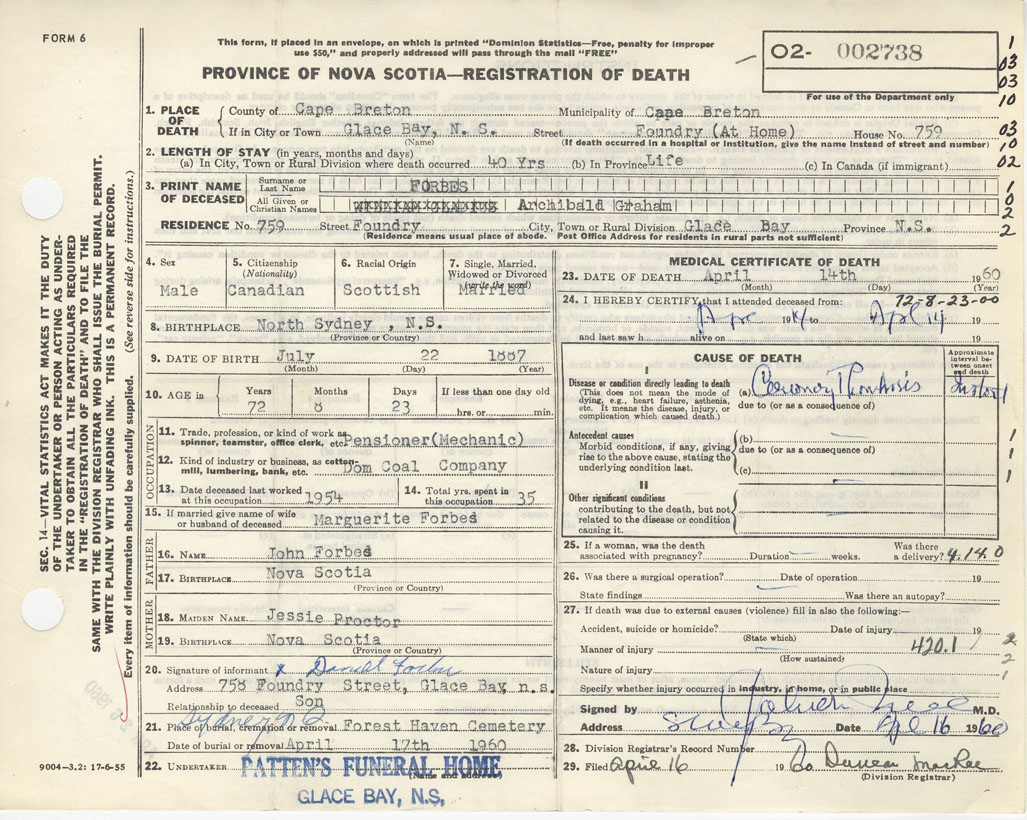 FORM 6
This form, if placed in an envelope, on which is printed "Dominion Statistics—Free, penalty for improper
use $50," and properly addressed will pass through the mail "FREE"
PROVINCE OF NOVA SCOTIA—REGISTRATION OF DEATH
02- 002738
For use of the Department only
1
03
03
10
03
10
02
1
0
2
2
SEC. 14—VITAL STATISTICS ACT MAKES IT THE DUTY
OF THE UNDERTAKER OR PERSON ACTING AS UNDER-
TAKER TO OBTAIN ALL THE PARTICULARS REQUIRED
IN THE "REGISTRATION OF DEATH" AND TO FILE THE
SAME WITH THE DIVISION REGISTRAR WHO SHALL ISSUE THE BURIAL PERMIT.
WRITE PLAINLY WITH UNFADING INK. THIS IS A PERMANENT RECORD.
Every item of information should be carefully supplied. (See reverse side for instructions.)
1. PLACE OF DEATH County of Cape Breton Municipality of Cape Breton
If in City or Town Glace Bay, N. S. Street Foundry (At Home) House No. 759
(Name) (If death occurred in a hospital or Institution, give the name instead of street and number)
2. LENGTH OF STAY (in years, months and days)
(a) In City, Town or Rural Division where death occurred 40 Yrs (b) In Province Life (c) In Canada (if immigrant)
3. PRINT NAME OF DECEASED
Surname or Last Name FORBES
All Given or Christian Names Archibald Graham
RESIDENCE No. 759 Street Foundry City, Town or Rural Division Glace Bay Province N.S.
(Residence means usual place of abode. Post Office Address for residents in rural parts not sufficient)
4. Sex
Male
5. Citizenship
(Nationality)
Canadian
6. Racial Origin
Scottish
7. Single, Married,
Widowed or Divorced
(write the word)
Married
8. BIRTHPLACE North Sydney , N.S.
(Province or Country)
9. DATE OF BIRTH July 22 1887
(Month) (Day) (Year)
10. AGE in Years Months Days If less than one day old
72 8 23 hrs. or min.
OCCUPATION
11. Trade, profession, or kind of work as
spinner, teamster, office clerk, etc. Pensioner(Mechanic)
12. Kind of industry or business, as cotton-
mill, lumbering, bank, etc. Dom Coal Company
13. Date deceased last worked
at this occupation 1954
14. Total yrs. spent in
this occupation 35
15. If married give name of wife
or husband of deceased Marguerite Forbes
FATHER
16. NAME John Forbes
17. BIRTHPLACE Nova Scotia
(Province or Country)
MOTHER
18. MAIDEN NAME Jessie Proctor
19. BIRTHPLACE Nova Scotia
(Province or Country)
20. Signature of informant x
Address 758 Foundry Street, Glace Bay, n.s.
Relationship to deceased Son
21. Place of burial, cremation or removal Forest Haven Cemetery
Date of burial or removal April 17th 1960
22. UNDERTAKER PATTEN'S FUNERAL HOME
(Name and address)
GLACE BAY, N.S.
9004-3.2: 17-6-55
MEDICAL CERTIFICATE OF DEATH
23. DATE OF DEATH April 14th 1960
(Month) (Day) (Year)
72-8-23-00
24. I HEREBY CERTIFY that I attended deceased from:
19 to April 14 19
and last saw h alive on 19
CAUSE OF DEATH
Approximate interval between onset and death
I
Disease or condition directly leading to death
(This does not mean the mode of
dying, e.g., heart failure, asthenia,
etc. It means the disease, injury, or
complication which caused death.)
(a) Coronary Thrombosis
due to (or as a consequence of)
Antecedent causes
Morbid conditions, if any, giving
rise to the above cause, stating the
underlying condition last.
(b)
due to (or as a consequence of)
(c)
II
Other significant conditions
contributing to the death, but not
related to the disease or condition
causing it.
1
1
1
25. If a woman, was the death
associated with pregnancy? Duration weeks. Was there
a delivery? 4.14.0
26. Was there a surgical operation? Date of operation 19
State findings Was there an autopsy?
27. If death was due to external causes (violence) fill in also the following:—
Accident, suicide or homicide? Date of injury 19
(State which)
Manner of injury 420.1
(How sustained)
2
2
1
Nature of injury
Specify whether injury occurred in industry, in home, or in public place
Signed by M.D.
Address Date Apl 16 1960
28. Division Registrar's Record Number
29. Filed April 16 1960 Duncan MacRae
(Division Registrar)